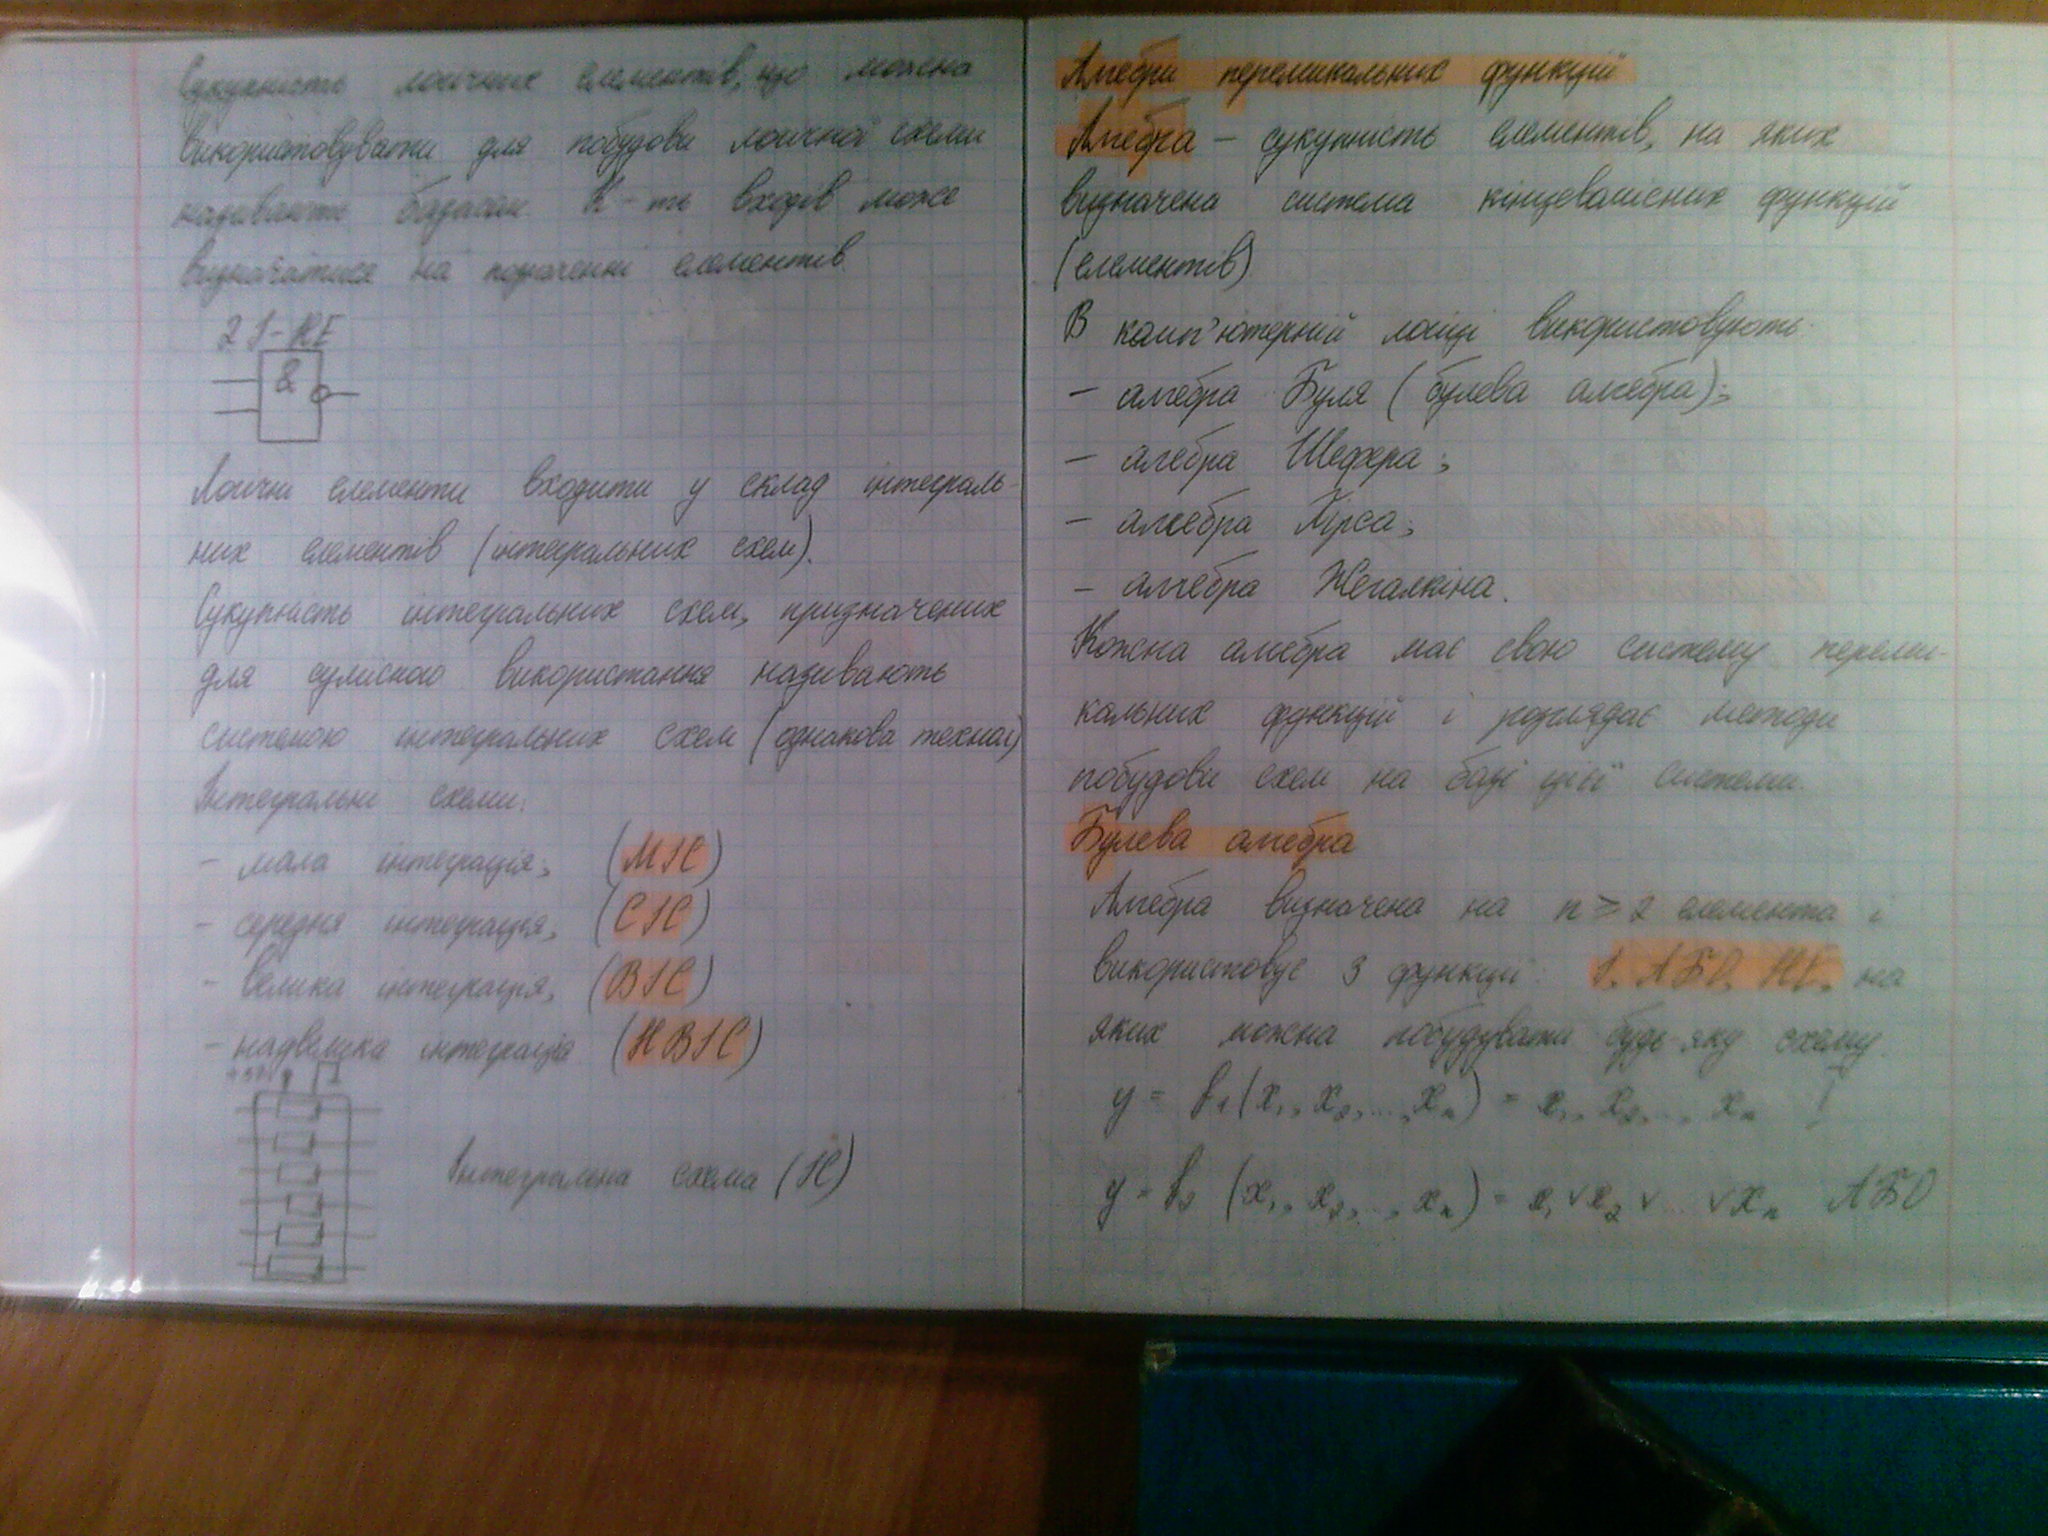 Сукупність логічних елементів, що можна
використовувати для побудови логічної схеми
називають базисом. К-ть входів може
визначатися на позначенні елементів
2 І-НЕ
&
Логічні елементи входити у склад інтеграль-
них елементів (інтегральних схем).
Сукупність інтегральних схем, призначених
для сумісного використання називають
системою інтегральних схем (однакова технол)
Інтегральні схеми:
- мала інтеграція; (МІС)
- середня інтеграція; (СІС)
- велика інтеграція; (ВІС)
- надвелика інтеграція (НВІС)
Інтегральна схема (ІС)
Алгебри перемикальних функцій
Алгебра - сукупність елементів, на яких
визначена система кінцевомісних функцій
(елементів).
В комп'ютерній логіці використовують:
- алгебра Буля (булева алгебра);
- алгебра Шефера;
- алгебра Пірса;
- алгебра Жегалкіна.
Кожна алгебра має свою систему переми-
кальних функцій і розглядає методи
побудови схем на базі цієї системи.
Булева алгебра
Алгебра визначена на n ≥ 2 елемента і
використовує 3 функції: І, АБО, НЕ, на
яких можна побудувати будь-яку схему.
y = f₁(x₁, x₂, ..., xₙ) = x₁, x₂, ..., xₙ І
y = f₂ (x₁, x₂, ..., xₙ) = x₁ ∨ x₂ ∨ ... ∨ xₙ АБО